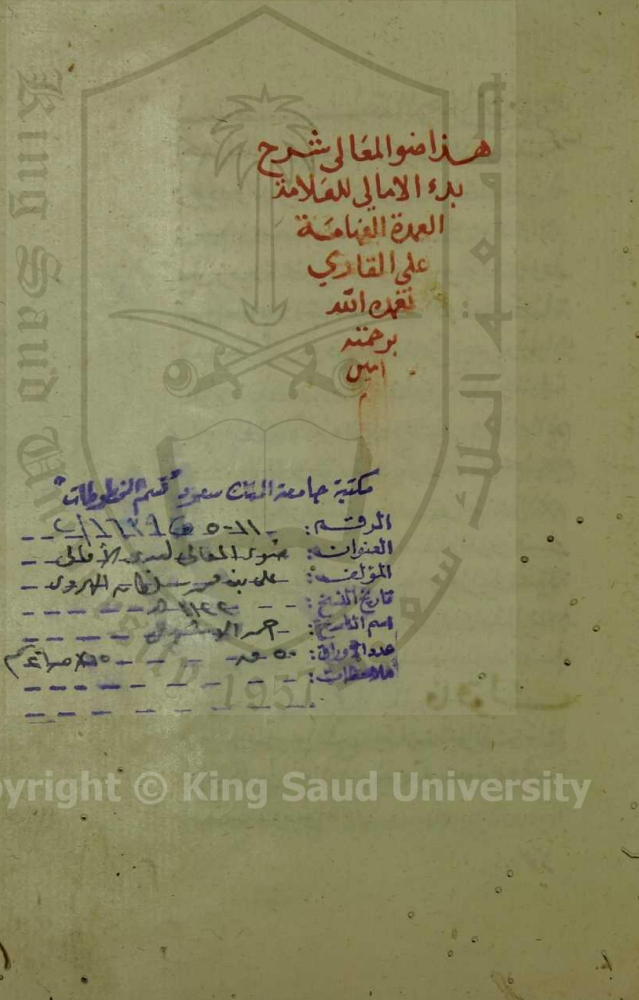 هذا ضو المعالى شرح
بدء الامالي للعلامة
العمدة الفهامة
على القاري
تغمده الله
برحمته
امين
مكتبة جامعة الملك سعود "قسم المخطوطات"
الرقم:
العنوان: ضوء المعالى لبدء الأمالى
المؤلف: على بن محمد سلطان الهروى
تاريخ النسخ: ١١٢٢ هـ
اسم الناسخ:
عدد الأوراق: ٥٠ ق
ملاحظات:
King Saud University
جامعة الملك سعود
1957
Copyright © King Saud University